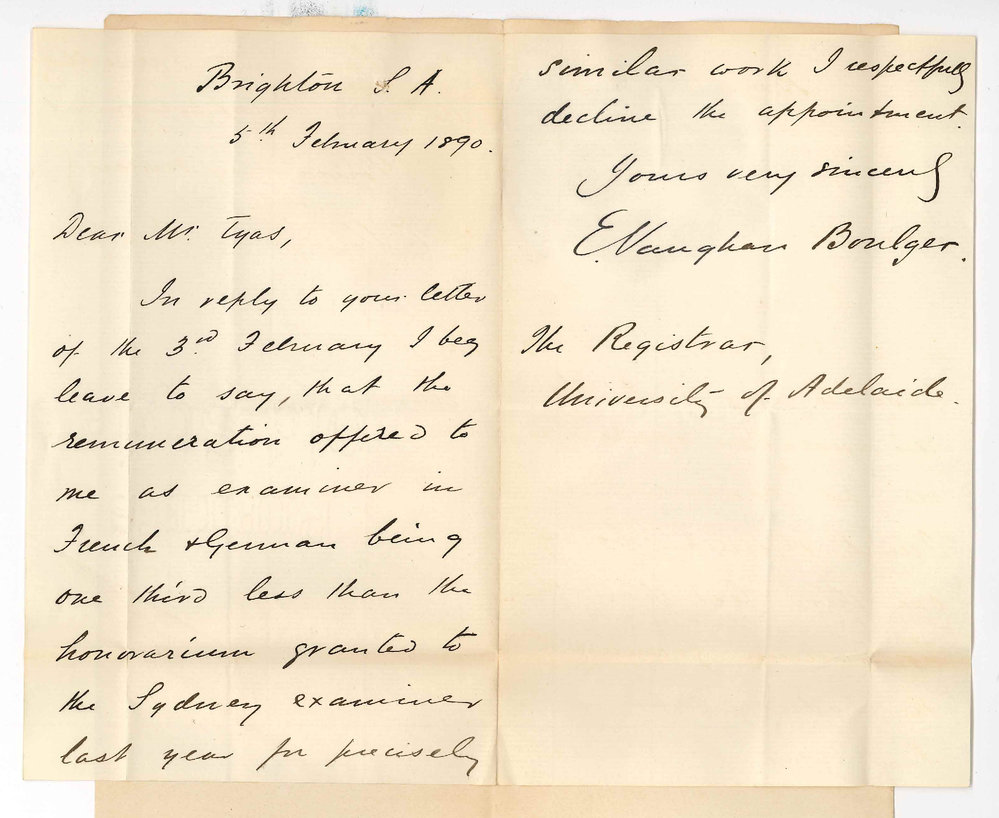 Brighton S. A.
5th February 1890.
Dear Mr. Tyas,
In reply to your letter
of the 3rd. February I beg
leave to say, that the
remuneration offered to
me as examiner in
French & German being
one third less than the
honorarium granted to
the Sydney examiner
last year for precisely
similar work I respectfully
decline the appointment.
Yours very sincerely
E. Vaughan Boulger.
The Registrar,
University of Adelaide.